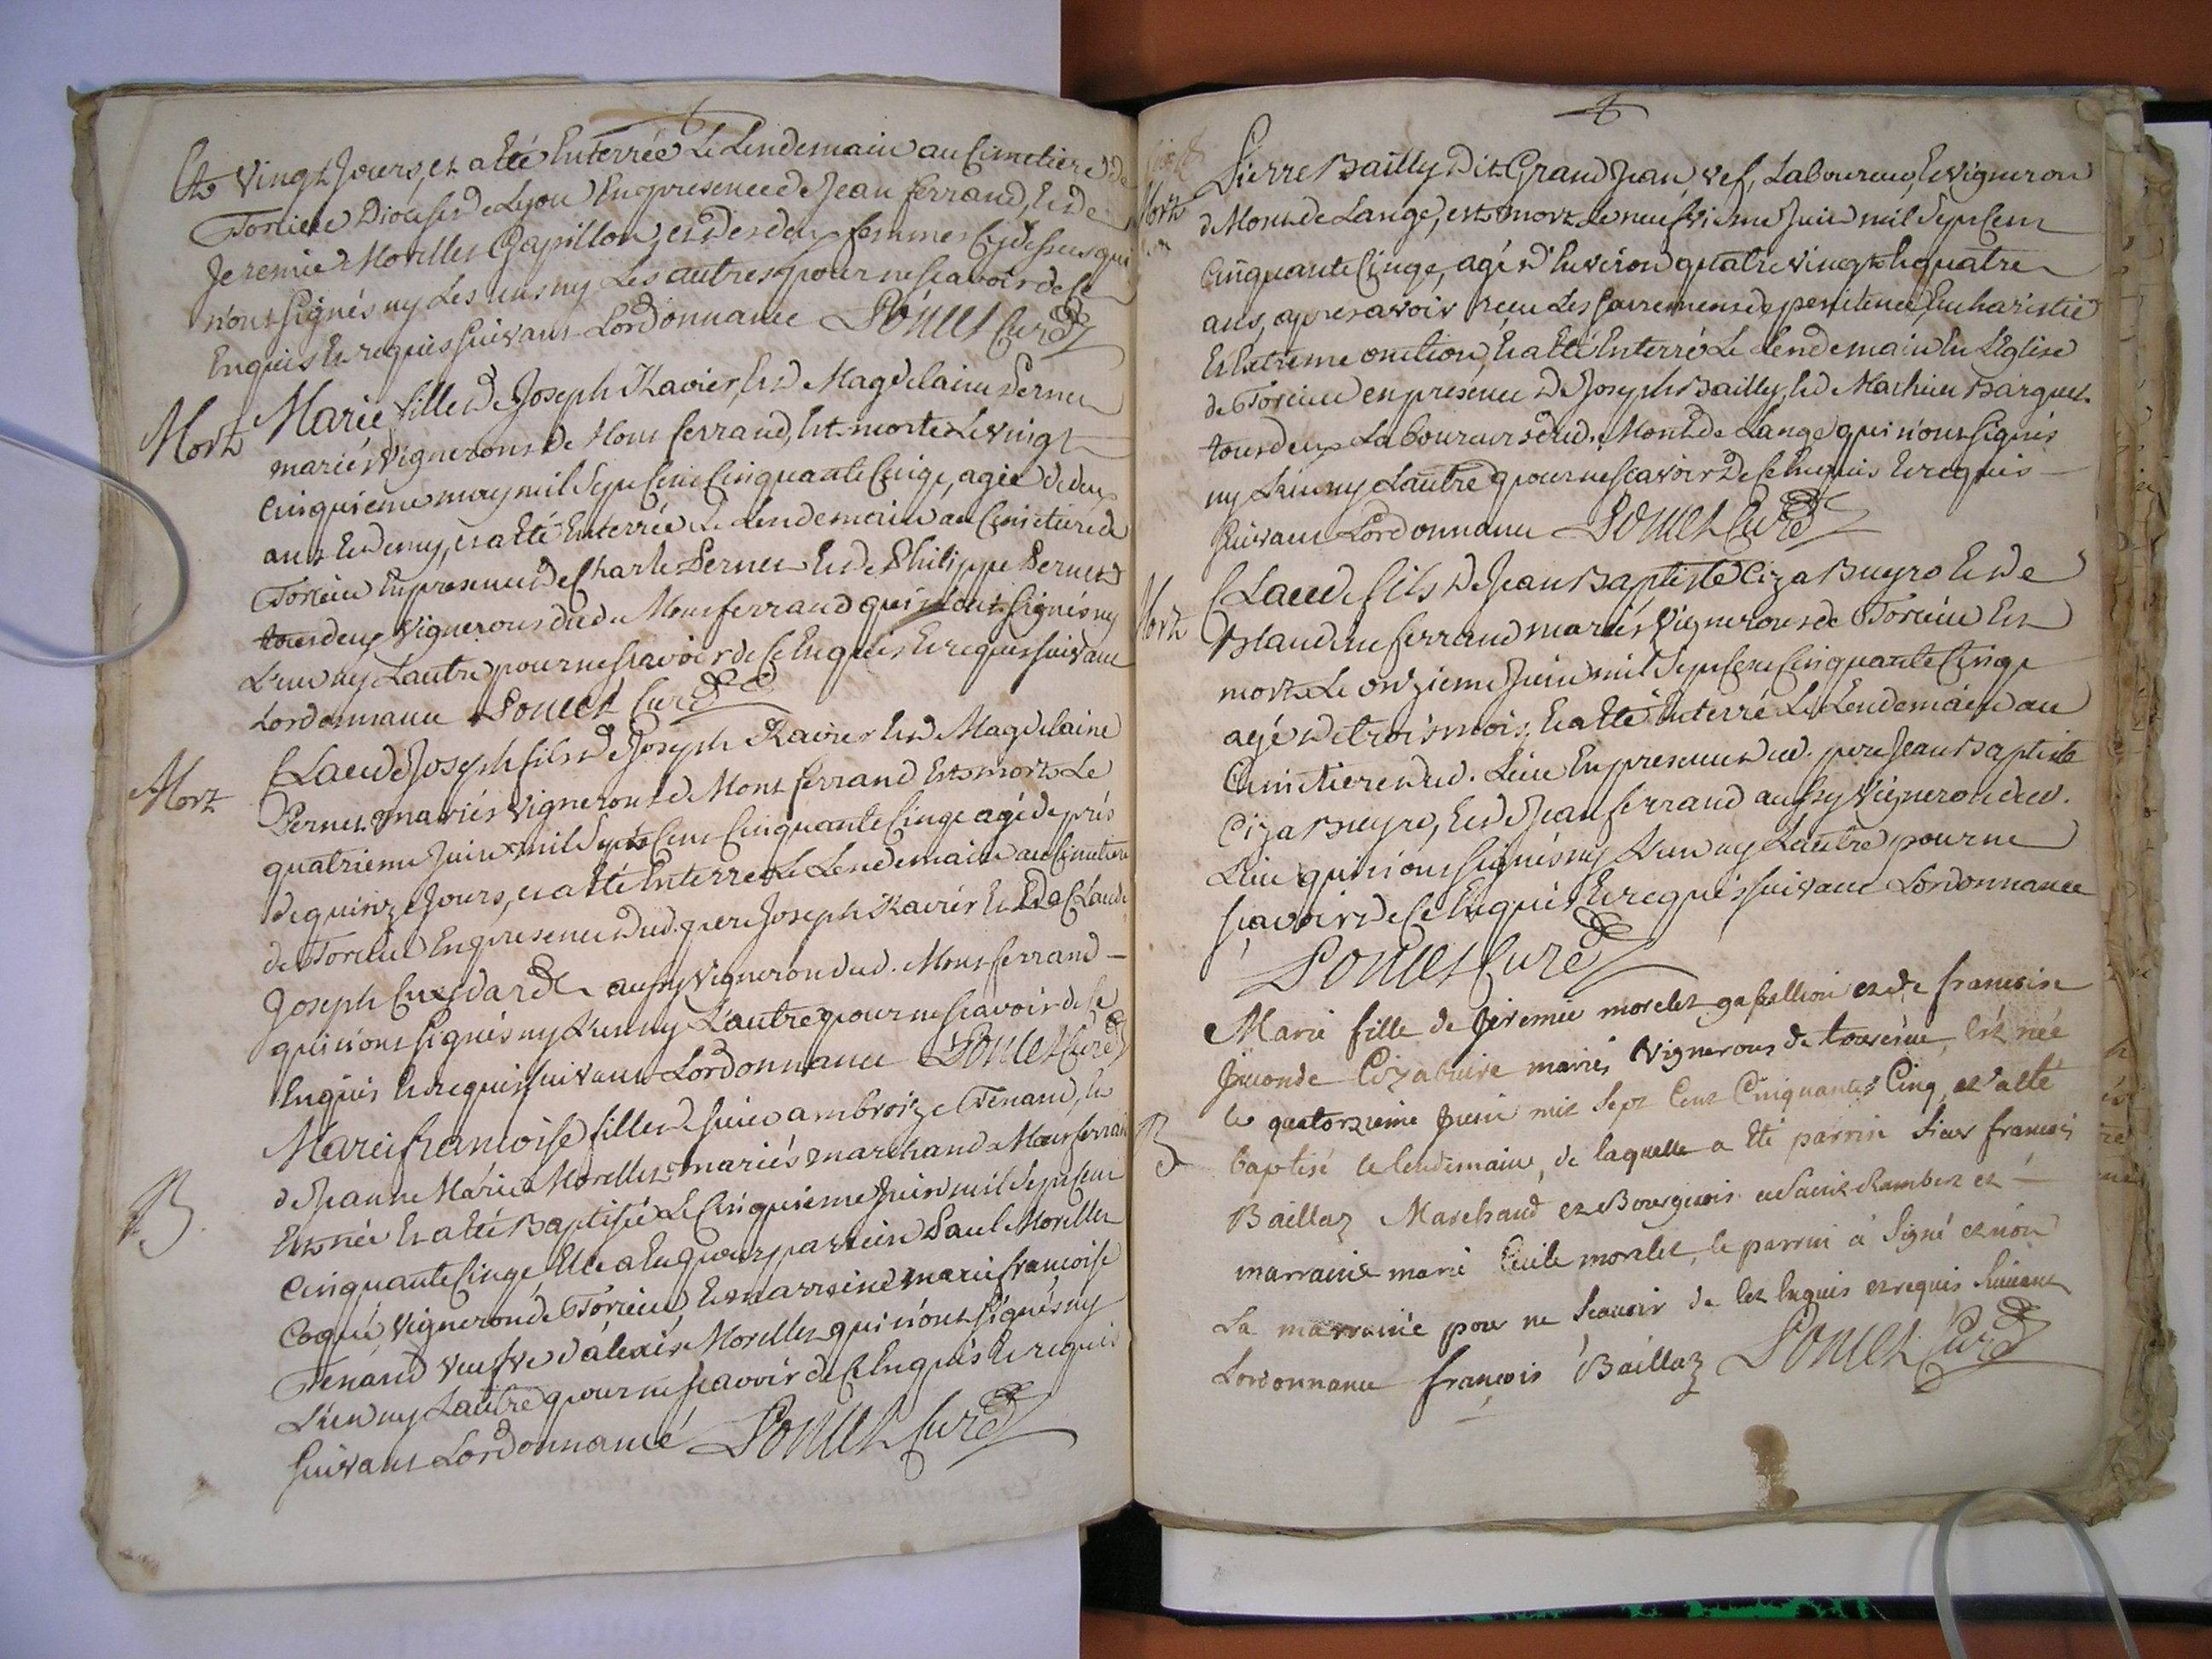 et vingt Jours, et a Eté Enterrée Le Lendemain au Cimetiere de
Torcieu Diocese de Lyon En presence de Jean ferrand, Et de
Jeremie Morellet Gapillon, et des deux femmes Cy dessus qui
n'ont signés ny Les uns ny Les autres pour ne scavoir de Ce
Enquis Et requis suivant Lordonnance Poncet Curé
Mort Marie fille de Joseph Ravier, Et de Magdelaine Pernet
mariés Vignerons de Mont ferrand, Est morte Le vingt
Cinquieme may mil Sept Cent Cinquante Cinq, agée de deux
ans Et demy, et a Eté Enterrée Le Lendemain au Cimetiere de
Torcieu En presence de Charle Pernet Et de Philippe Pernet
tous deux Vignerons dud. Montferrand qui n'ont signés ny
L'un ny L'autre pour ne scavoir de Ce Enquis Et requis suivant
Lordonnance Poncet Curé
Mort Claude Joseph fils de Joseph Ravier Et de Magdelaine
Pernet mariés Vignerons de Mont ferrand Est mort Le
quatrieme Juin mil Sept Cent Cinquante Cinq agé de prés
de quinze Jours, et a Eté Enterré Le Lendemain au Cimetiere
de Torcieu En presence dud. pere Joseph Ravier Et de Claude
Joseph aussy Vigneron dud. Montferrand
qui n'ont signés ny L'un ny L'autre pour ne scavoir de Ce
Enquis Et requis suivant Lordonnance Poncet Curé
Marie francoise fille de sieur ambroize Tenand, Et
de Jeanne Marie Morellet mariés marchand a Montferrand
B. Est née Et a Eté Baptisée Le Cinquieme Juin mil Sept Cent
Cinquante Cinq, Elle a Eu pour parrein Paul Morellet
Coqué, Vigneron de Torcieu Et marreine marie francoise
Tenand veufve d'alexis Morellet qui n'ont signés ny
L'un ny L'autre pour ne scavoir de Ce Enquis Et requis
suivant Lordonnance Poncet Curé
Pierre Bailly Dit Grand Jean, vef, Laboureur, Et Vigneron
Mort de Mont de Lange, est mort Le neufvieme Juin mil Sept Cent
Cinquante Cinq, agé d'Environ quatre vingt Et quatre
ans, apres avoir reçu Les Sacremens de penitence, Eucharistie
Et Extreme onction, Et a Eté Enterré Le Lendemain En L'Eglise
de Torcieu en presence de Joseph Bailly, Et de Mathieu Barquet
tous deux Laboureurs dud. Mont de Lange qui n'ont signés
ny L'un ny L'autre pour ne scavoir de Ce Enquis Et requis
suivant Lordonnance Poncet Curé
Claude fils de Jean Baptiste Ciza Buyro Et de
Mort Blandine ferrand mariés Vignerons de Torcieu Est
mort Le onzieme Juin mil Sept Cent Cinquante Cinq
agé de trois mois, Et a Eté Enterré Le Lendemain au
Cimetiere dud. Lieu En presence dud. pere Jean Baptiste
Ciza Buyro, Et de Jean ferrand aussy Vigneron dud.
Lieu qui n'ont signés ny L'un ny L'autre pour ne
sçavoir de Ce Enquis Et requis suivant Lordonnance
Poncet Curé
Marie fille de Jeremie morelet gapillion et de francoise
Jaconde Cizabuire mariés Vignerons de torcieu, Est née
le quatorzieme Juin mil Sept Cent Cinquante Cinq, et a Eté
B baptisé le lendemain, de laquelle a Eté parrin Sieur francois
Baillaz Marchand et Bourgeois a Saint Rambert et
marraine marie Cecile morelet, le parrin a Signé et non
La marraine pour ne Scavoir de Cet Enquis et requis Suivant
Lordonnance françois Baillaz Poncet Curé